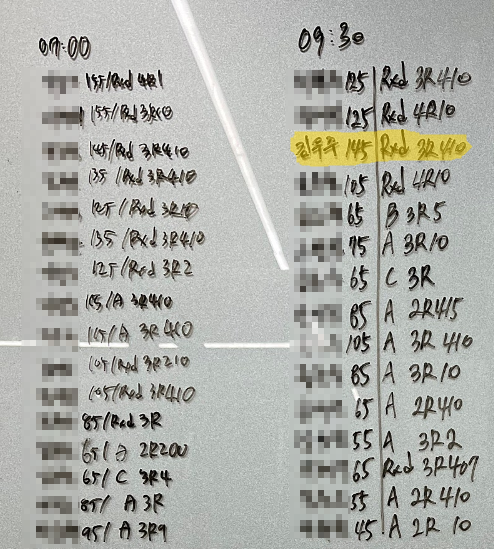 07:00
155/Rxd 4R1
155/Rxd 3R10
145/Rxd 3R410
135/Rxd 3R410
125/Rxd 3R10
135/Rxd 3R410
125/Rxd 3R2
115/A 3R410
115/A 3R410
105/Rxd 3R210
105/Rxd 3R410
85/Rxd 3R
65/A 2R200
65/C 3R4
85/A 3R
95/A 3R9
09:30
125 Rxd 3R410
125 Rxd 4R10
145 Rxd 3R410
105 Rxd 4R10
65 B 3R5
75 A 3R10
65 C 3R
85 A 2R415
105 A 3R410
85 A 3R10
65 A 2R410
55 A 3R2
65 Rxd 3R407
55 A 2R410
45 A 2R10